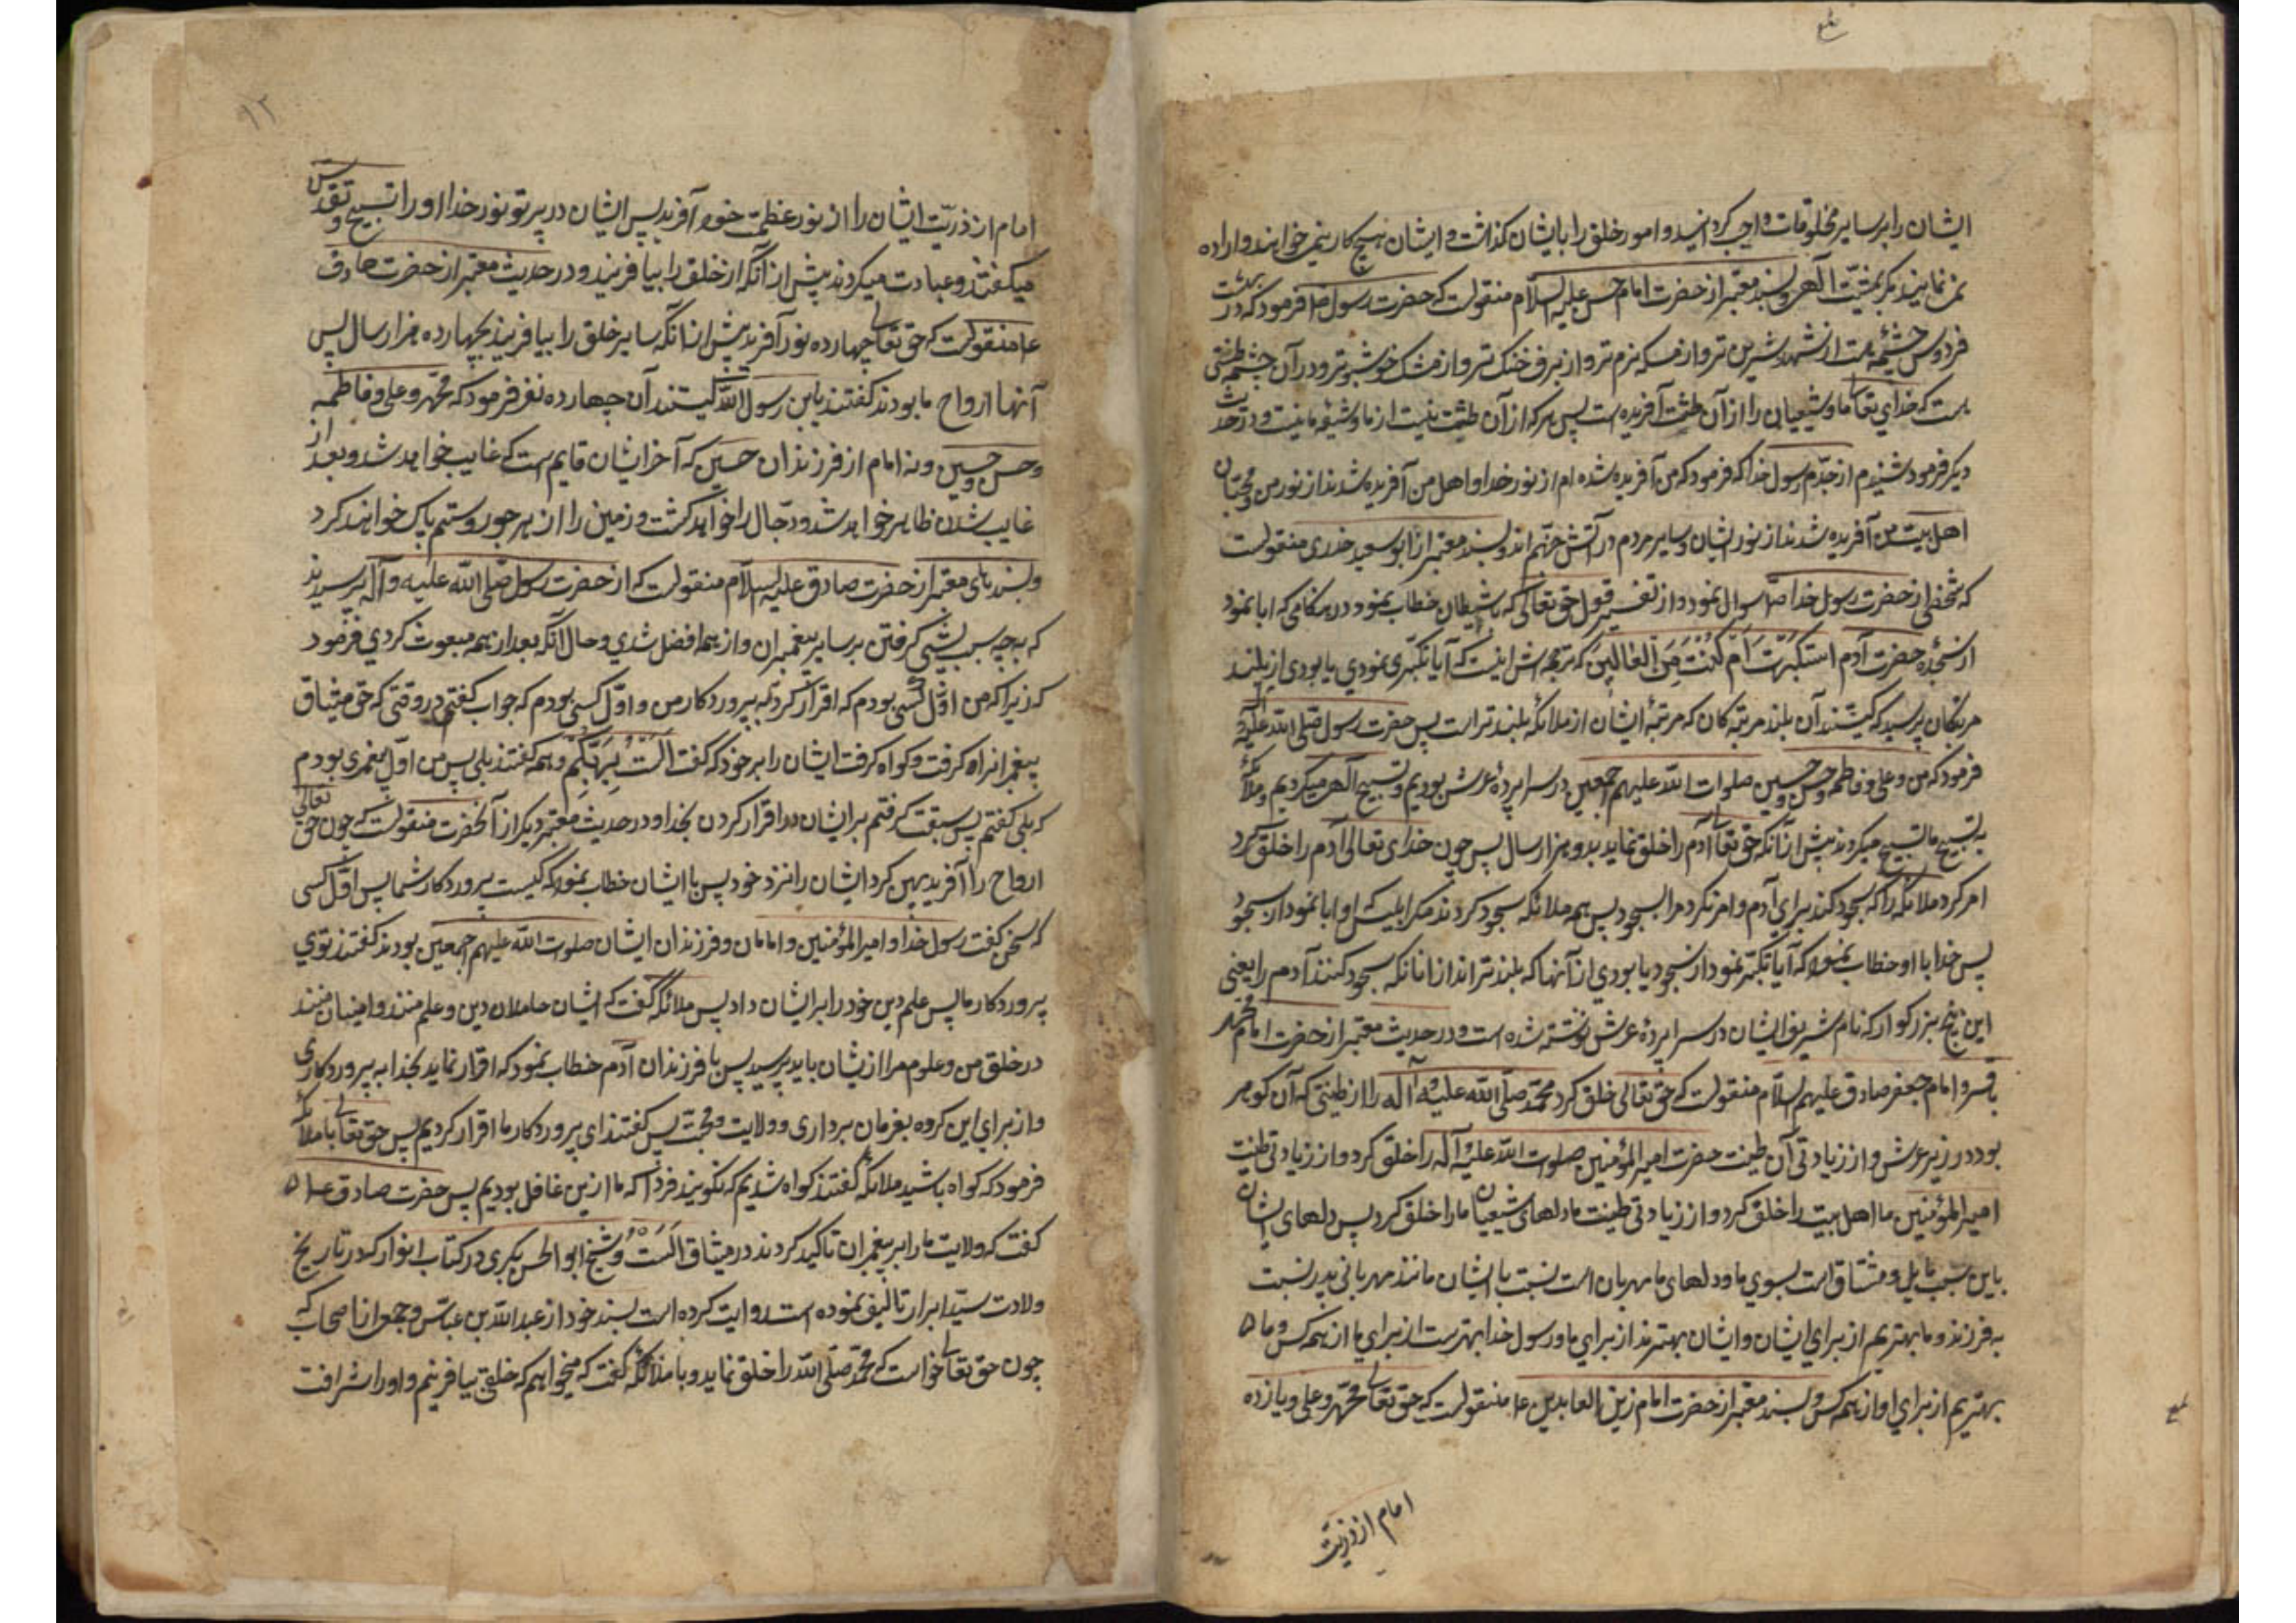 ایشان را بر سایر مخلوقات واجب کردانید و امور خلق را بایشان کذاشت و ایشان هیچ کار نمی خواهند و اراده
نمی نمایند مکر بمشیّت آلهی و بسند معتبر از حضرت امام حسن علیه السلام منقولست که حضرت رسول ص فرمود که در بهشت
فردوس چشمه هست از شهد شیرین تر و از مسکه نرم تر و از برف خنک تر و از مشک خوشبو تر و در آن چشمه طینتی
هست که خدای تعالی ما و شیعیان را از آن طینت آفریده است پس هر که از آن طینت نیست از ما و شیعه ما نیست و در حدیث
دیکر فرمود شنیدم از جدّم رسول خدا که فرمود که من آفریده شده ام از نور خدا و اهل من آفریده شدند از نور من و محبّان
اهل بیت من آفریده شدند از نور ایشان و سایر مردم در آتش جهنّم اند و بسند معتبر از ابو سعید خدری منقولست
که شخصی از حضرت رسول خدا ص سوال نمود و از تفسیر قول حق تعالی که با شیطان خطاب نمود در هنکامی که ابا نمود
از سجدهٔ حضرت آدم استکبرت ام کنت من العالین که ترجمه اش اینست که آیا تکبری نمودی یا بودی از بلند
مرتبکان پرسید که کیستند آن بلند مرتبه کان که مرتبهٔ ایشان از ملائکه بلند تر است پس حضرت رسول صلی الله علیه و آله
فرمود که من و علی و فاطمه و حسن و حسین صلوات الله علیهم اجمعین در سرا پردهٔ عرش بودیم و تسبیح آلهی میکردیم و ملائکه
به تسبیح ما تسبیح میکردند پیش از آنکه حق تعالی آدم را خلق نماید بدو هزار سال پس چون خدای تعالی آدم را خلق کرد
امر کرد ملائکه را که سجود کنند برای آدم و امر نکرد مرا بسجود پس همه ملائکه سجود کردند مکر ابلیس که او ابا نمود از سجود
پس خدا با او خطاب نمود که آیا تکبّر نمود از سجود یا بودی از آنها که بلند تر اند از انانکه سجود کنند آدم را یعنی
این پنج بزرکوار که نام شریف ایشان در سرا پردهٔ عرش نوشته شده است و در حدیث معتبر از حضرت امام محمد
باقر و امام جعفر صادق علیهم السلام منقولست که حق تعالی خلق کرد محمّد صلّی الله علیه و آله را از طینتی که آن کوهر
بود در زیر عرش و از زیادتی آن طینت حضرت امیر المؤمنین صلوات الله علیه و آله را خلق کرد و از زیادتی طینت
امیر المؤمنین ما اهل بیت را خلق کرد و از زیادتی طینت ما دلهای شیعیان ما را خلق کرد پس دلهای ایشان
باین سبب مایل و مشتاق است بسوی ما و دلهای ما مهربان است نسبت با ایشان مانند مهربانی پدر نسبت
به فرزند و ما بهتریم از برای ایشان و ایشان بهترند از برای ما و رسول خدا بهترست از برای ما از همه کس و ما
بهتریم از برای او از همه کس و بسند معتبر از حضرت امام زین العابدین ع منقولست که حق تعالی محمّد و علی و یازده
امام از ذریّت
۱۲
امام از ذریّت ایشان را از نور عظمت خود آفرید پس ایشان در پرتو نور خدا او را تسبیح و تقدیس
میکفتند و عبادت میکردند پیش از آنکه از خلق را بیافریند و در حدیث معتبر از حضرت صادق
ع منقولست که حق تعالی چهارده نور آفرید پیش از انکه سایر خلق را بیافریند بچهارده هزار سال پس
آنها ارواح ما بودند کفتند یابن رسول الله کیستند آن چهارده نفر فرمود که محمّد و علی و فاطمه
و حسن و حسین و نه امام از فرزندان حسین که آخر ایشان قایم است که غایب خواهد شد و بعد از
غایب شدن ظاهر خواهد شد و دجّال را خواهد کشت و زمین را از هر جور و ستم پاک خواهند کرد
و بسند های معتبر از حضرت صادق علیه السلام منقولست که از حضرت رسول صلّی الله علیه و آله پرسیدند
که بچه سبب پیشی کرفتن بر سایر پیغمبران و از همه افضل شدی و حال آنکه بعد از همه مبعوث کردی فرمود
که زیرا که من اوّل کسی بودم که اقرار کرد به پروردکار من و اوّل کسی بودم که جواب کفتم در وقتی که حق میثاق
پیغمبرانرا کرفت و کواه کرفت ایشان را بر خود که کفت الست بربکم و همه کفتند بلی پس من اوّل پیغمبری بودم
که بلی کفتم پس سبقت کرفتم بر ایشان در اقرار کردن بخدا و در حدیث معتبر دیکر از آنحضرت منقولست که چون حق تعالی
ارواح را آفرید پهن کرد ایشان را نزد خود پس با ایشان خطاب نمود که کیست پروردکار شما پس اوّل کسی
که سخن کفت رسول خدا و امیر المؤمنین و امامان و فرزندان ایشان صلوات الله علیهم اجمعین بودند کفتند توی
پروردکار ما پس علم دین خود را بر ایشان داد پس ملائکه کفت که ایشان حاملان دین و علم منند و امینان منند
در خلق من و علوم مرا از یشان باید پرسید پس با فرزندان آدم خطاب نمود که اقرار نماید بخدا به پروردکاری
و از برای این کروه بفرمان برداری و ولایت و محبّت پس کفتند ای پروردکار ما اقرار کردیم پس حق تعالی با ملائکه
فرمود که کواه باشید ملائکه کفتند کواه شدیم که نکویند فردا که ما ازین غافل بودیم پس حضرت صادق ع
کفت که ولایت ما را بر پیغمبران تاکید کردند در میثاق الست و شیخ ابو الحسن بکری در کتاب انوار که در تاریخ
ولادت سیّد ابرار تالیف نموده است روایت کرده است بسند خود از عبد الله بن عبّاس و جمعی از اصحاب که
چون حق تعالی خواست که محمّد صلّی الله را خلق نماید و با ملائکه کفت که میخواهم که خلقی بیافرینم و او را شرافت